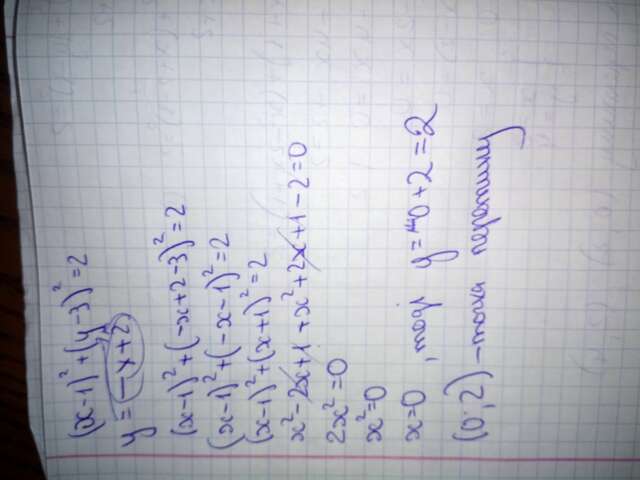 (x-1)²+(y-3)²=2
y=-x+2
(x-1)²+(-x+2-3)²=2
(x-1)²+(-x-1)²=2
(x-1)²+(x+1)²=2
x²-2x+1+x²+2x+1-2=0
2x²=0
x²=0
x=0, тоді y=-0+2=2
(0;2)-точка перетину